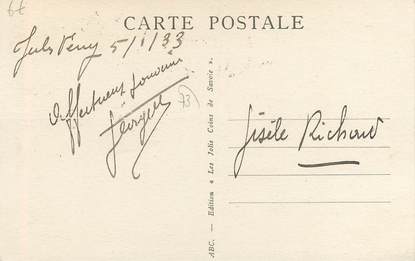 6€
CARTE POSTALE
5/1/33
affectueux souvenir
Georges
73
Gisèle Richard
ABC. — Edition « Les Jolis Coins de Savoie ».